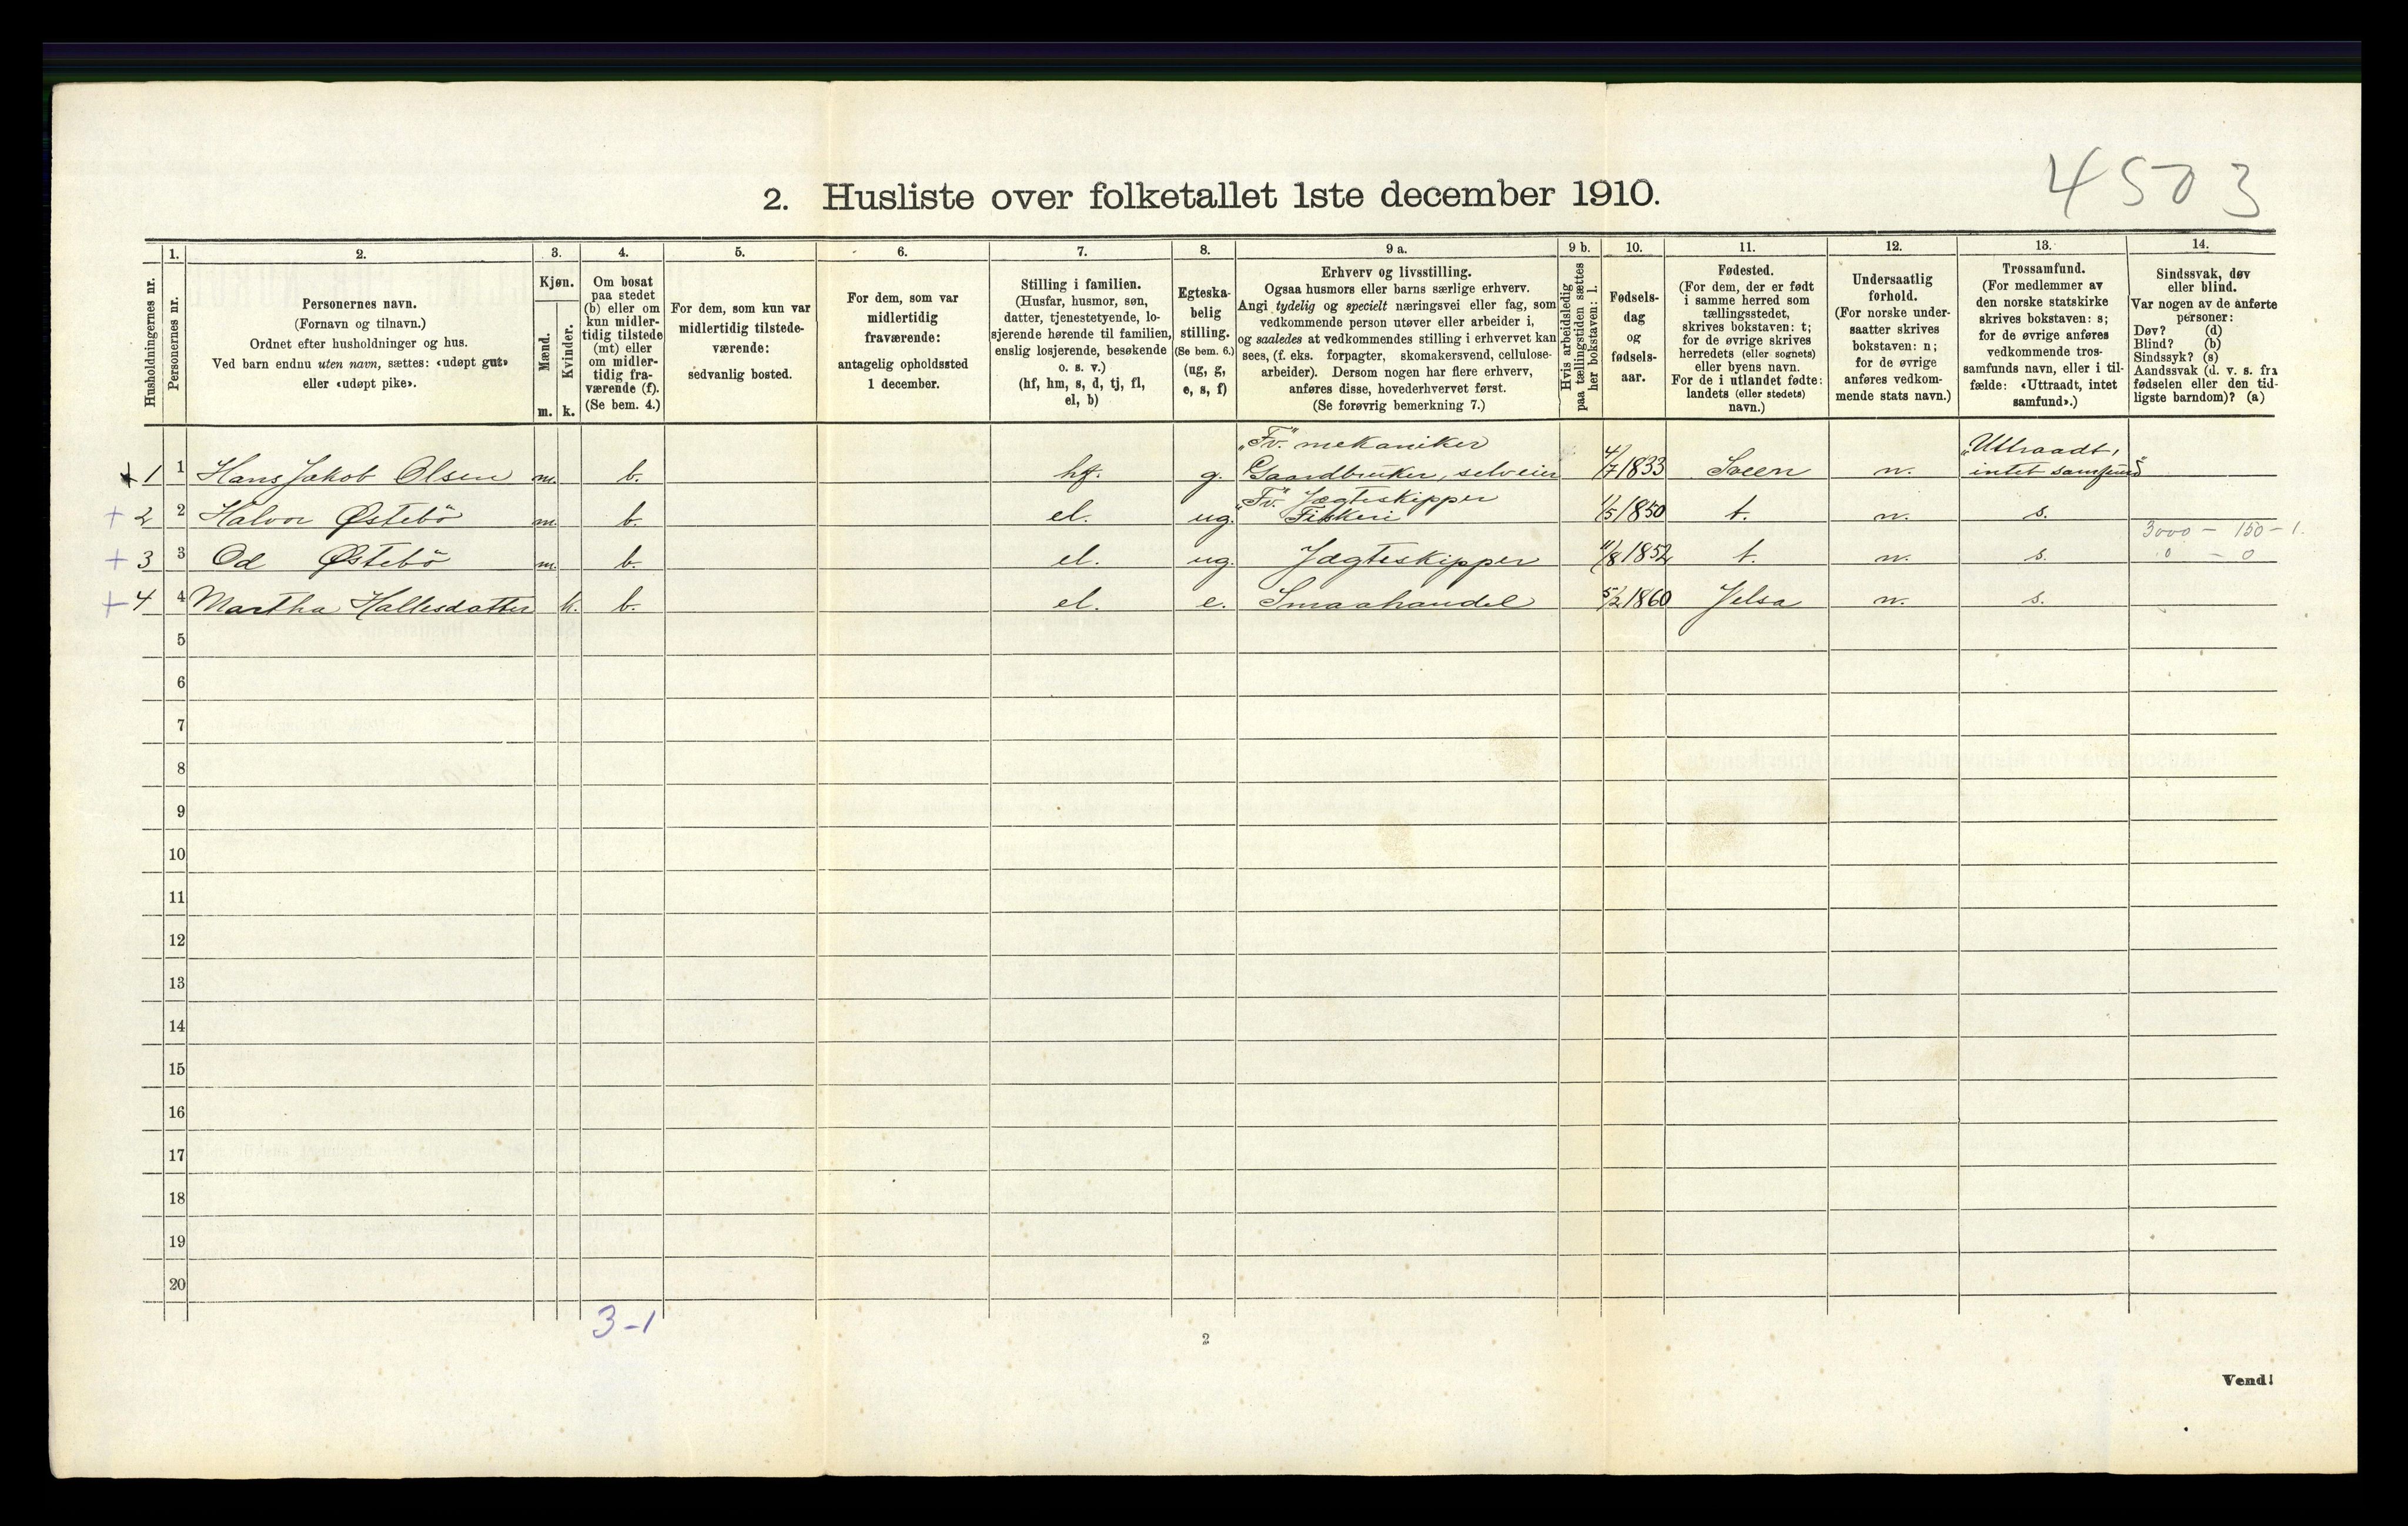 4503
2. Husliste over folketallet 1ste december 1910.
Husholdningernes nr.
1.
Personernes nr.
2.
Personernes navn.
(Fornavn og tilnavn.)
Ordnet efter husholdninger og hus.
Ved barn endnu uten navn, sættes: «udøpt gut»
eller «udøpt pike».
3.
Kjøn.
Mænd.
Kvinder.
m. k.
4.
Om bosat
paa stedet
(b) eller om
kun midler-
tidig tilstede
(mt) eller
om midler-
tidig fra-
værende (f).
(Se bem. 4.)
5.
For dem, som kun var
midlertidig tilstede-
værende:
sedvanlig bosted.
6.
For dem, som var
midlertidig
fraværende:
antagelig opholdssted
1 december.
7.
Stilling i familien.
(Husfar, husmor, søn,
datter, tjenestetyende, lo-
sjerende hørende til familien,
enslig losjerende, besøkende
o. s. v.)
(hf, hm, s, d, tj, fl,
el, b)
8.
Egteska-
belig
stilling.
(Se bem. 6.)
(ug, g,
e, s, f)
9 a.
Erhverv og livsstilling.
Ogsaa husmors eller barns særlige erhverv.
Angi tydelig og specielt næringsvei eller fag, som
vedkommende person utøver eller arbeider i,
og saaledes at vedkommendes stilling i erhvervet kan
sees, (f. eks. forpagter, skomakersvend, cellulose-
arbeider). Dersom nogen har flere erhverv,
anføres disse, hovederhvervet først.
(Se forøvrig bemerkning 7.)
9 b.
Hvis arbeidsledig
paa tællingstiden sættes
her bokstaven: l.
10.
Fødsels-
dag
og
fødsels-
aar.
11.
Fødested.
(For dem, der er født
i samme herred som
tællingsstedet,
skrives bokstaven: t;
for de øvrige skrives
herredets (eller sognets)
eller byens navn.
For de i utlandet fødte:
landets (eller stedets)
navn.)
12.
Undersaatlig
forhold.
(For norske under-
saatter skrives
bokstaven: n;
for de øvrige
anføres vedkom-
mende stats navn.)
13.
Trossamfund.
(For medlemmer av
den norske statskirke
skrives bokstaven: s;
for de øvrige anføres
vedkommende tros-
samfunds navn, eller i til-
fælde: «Uttraadt, intet
samfund».)
14.
Sindssvak, døv
eller blind.
Var nogen av de anførte
personer:
Døv? (d)
Blind? (b)
Sindssyk? (s)
Aandssvak (d. v. s. fra
fødselen eller den tid-
ligste barndom)? (a)
"Fv." mekaniker "Uttraadt,
+ 1 1 Hans Jakob Olsen m. b. hf. g. Gaardbruker, selveier 4/7 1833 Sveen n. intet samfund"
"Fv." Jægteskipper
+ 2 2 Halvor Østebö m. b. el. ug. Fiskeri 1/5 1850 t. n. s.
3000 - 150 - 1.
+ 3 3 Od Østebö m. b. el. ug. Jægteskipper 11/8 1852 t. n. s. 0 - 0
+ 4 4 Martha Hallesdatter k. b. el. e. Smaahandel 5/2 1860 Jelsa n. s.
5
6
7
8
9
10
11
12
13
14
15
16
17
18
19
20
3-1
2
Vend!